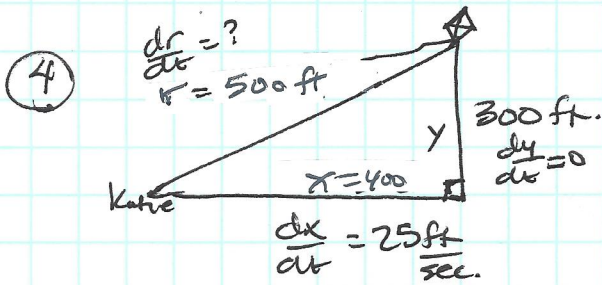 4
dr/dt = ?
r = 500 ft
300 ft.
y
dy/dt = 0
x = 400
dx/dt = 25 ft/sec.